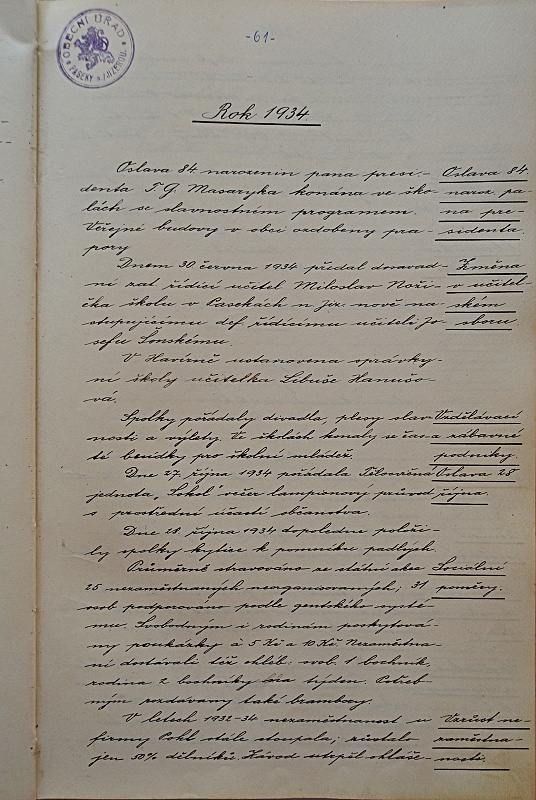 -61-
OBECNÍ ÚŘAD
PASEKY n./JIZEROU.
Rok 1934
Oslava 84 narozenin pana presi-
denta T. G. Masaryka konána ve ško-
lách se slavnostním programem.
Veřejné budovy v obci ozdobeny pra-
pory
Oslava 84.
naroz. pa-
na pre-
sidenta.
Dnem 30. června 1934 předal dosavad-
ní zat. řídící učitel Miloslav Noži-
čka školu v Pasekách n. Jiz. nově na-
stupujícímu def. řídícímu učiteli Jo-
sefu Šonskému.
Změna
v učitel-
ském
sboru.
V Havírně ustanovena správky-
ní školy učitelka Libuše Hanušo-
va.
Spolky pořádaly divadla, plesy slav-
nosti a výlety. Ve školách konaly se časa-
té besídky pro školní mládež.
Vzdělávací
a zábavné
podniky.
Dne 27. října 1934 pořádala Tělocvičná
jednota „Sokol" večer lampionový průvod
s prostřední účastí občanstva.
Oslava 28
října.
Dne 28. října 1934 dopoledne položi-
ly spolky kytice k pomníku padlých.
Průměrně stravováno ze státní akce
25 nezaměstnaných neorganisovaných; 31
osob podporováno podle gentského systé-
mu. Svobodným i rodinám poskytová-
ny poukázky à 5 Kč a 10 Kč. Nezaměstna-
ní dostávali též chléb: svob. 1 bochník,
rodina 2 bochníky týden. Potřeb-
ným rozdávány také brambory.
Sociální
poměry.
V letech 1932-34 nezaměstnanost u
firmy Pohl stále stoupala; zůstalo
jen 50% dělníků. Závod utrpěl ohláše-
Vzrůst ne-
zaměstna-
nosti.